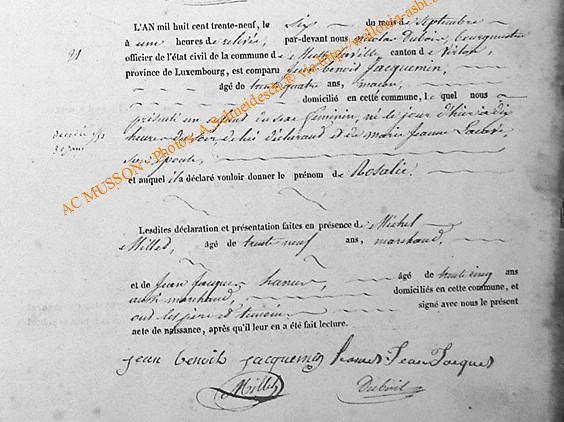 L'AN mil huit cent trente-neuf, le six du mois de septembre
à une heures de relevée, par-devant nous Nicolas Duboix, bourguemestre
officier de l'état civil de la commune de canton de Virton,
province de Luxembourg, est comparu Jean Benoit Jacquemin,
âgé de trente quatre ans, maçon,
domicilié en cette commune, lequel nous
présenté un enfant du sexe féminin, né le jour d'hier à dix
heures du soir, de lui déclarant et de Marie Jeanne
son épouse,
et auquel il a déclaré vouloir donner le prénom de Rosalie.
Lesdites déclaration et présentation faites en présence de Michel
Millet, âgé de trente neuf ans, marchand,
et de Jean Jacques âgé de trente cinq ans
aussi marchand, domiciliés en cette commune, et
ont les père et témoins signé avec nous le présent
acte de naissance, après qu'il leur en a été fait lecture.
jean benoit jacquemin Jean Jacques
Millet
AC MUSSON - Photos: A. Schneidesch @ via http://wallonia-asbl.